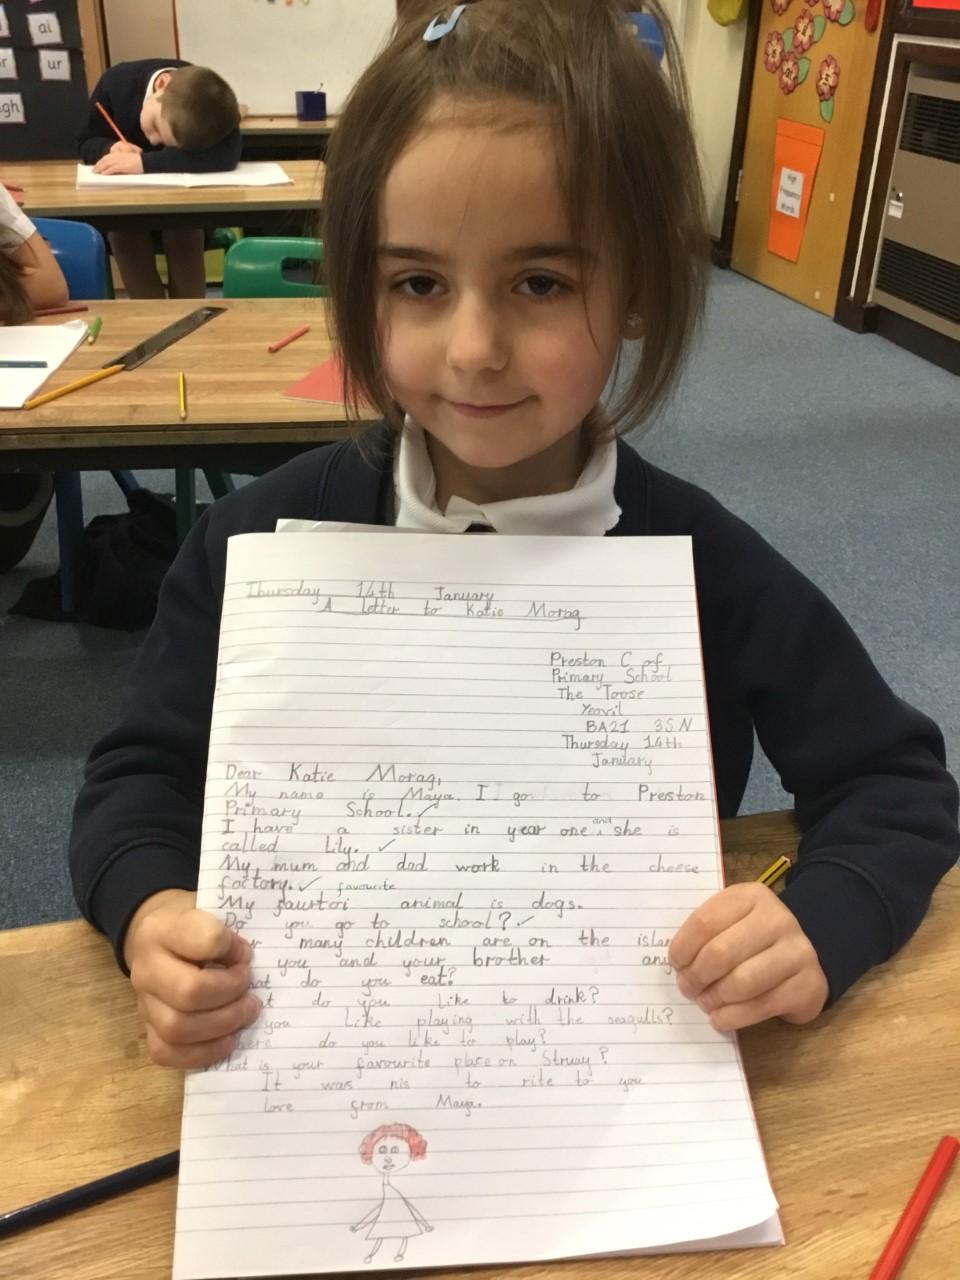 ai
ur
Thursday 14th January
A letter to Katie Morag
Preston C of
Primary School
The Toose
Yeovil
BA21 3SN
Thursday 14th
January
Dear Katie Morag,
My name is Maya. I go to Preston
Primary School.
I have a sister in year one and she is
called Lily.
My mum and dad work in the cheese
factory.
favourite
My faurtori animal is dogs.
Do you go to school?
many children are on the
you and your brother
do you eat?
do you like to drink?
you like playing with the seagulls?
do you like to play?
What is your favourite place on Struay?
It was nis to rite to you
love from Maya.
High
Frequency
Words